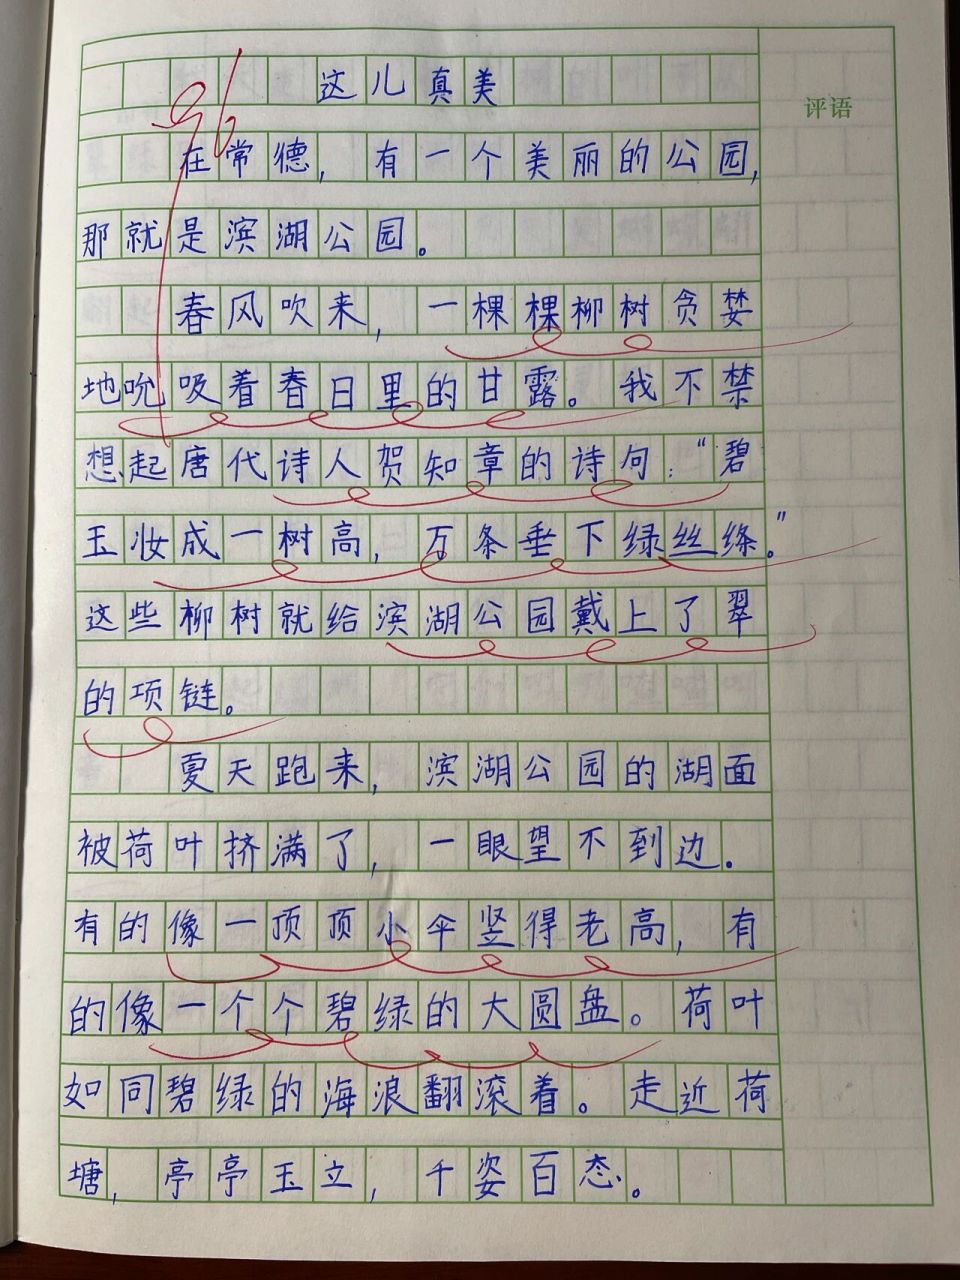 这儿真美
评语
96
在常德，有一个美丽的公园，
那就是滨湖公园。
春风吹来，一棵棵柳树贪婪
地吮吸着春日里的甘露。我不禁
想起唐代诗人贺知章的诗句：“碧
玉妆成一树高，万条垂下绿丝绦。”
这些柳树就给滨湖公园戴上了翠
的项链。
夏天跑来，滨湖公园的湖面
被荷叶挤满了，一眼望不到边。
有的像一顶顶小伞竖得老高，有
的像一个个碧绿的大圆盘。荷叶
如同碧绿的海浪翻滚着。走近荷
塘，亭亭玉立，千姿百态。